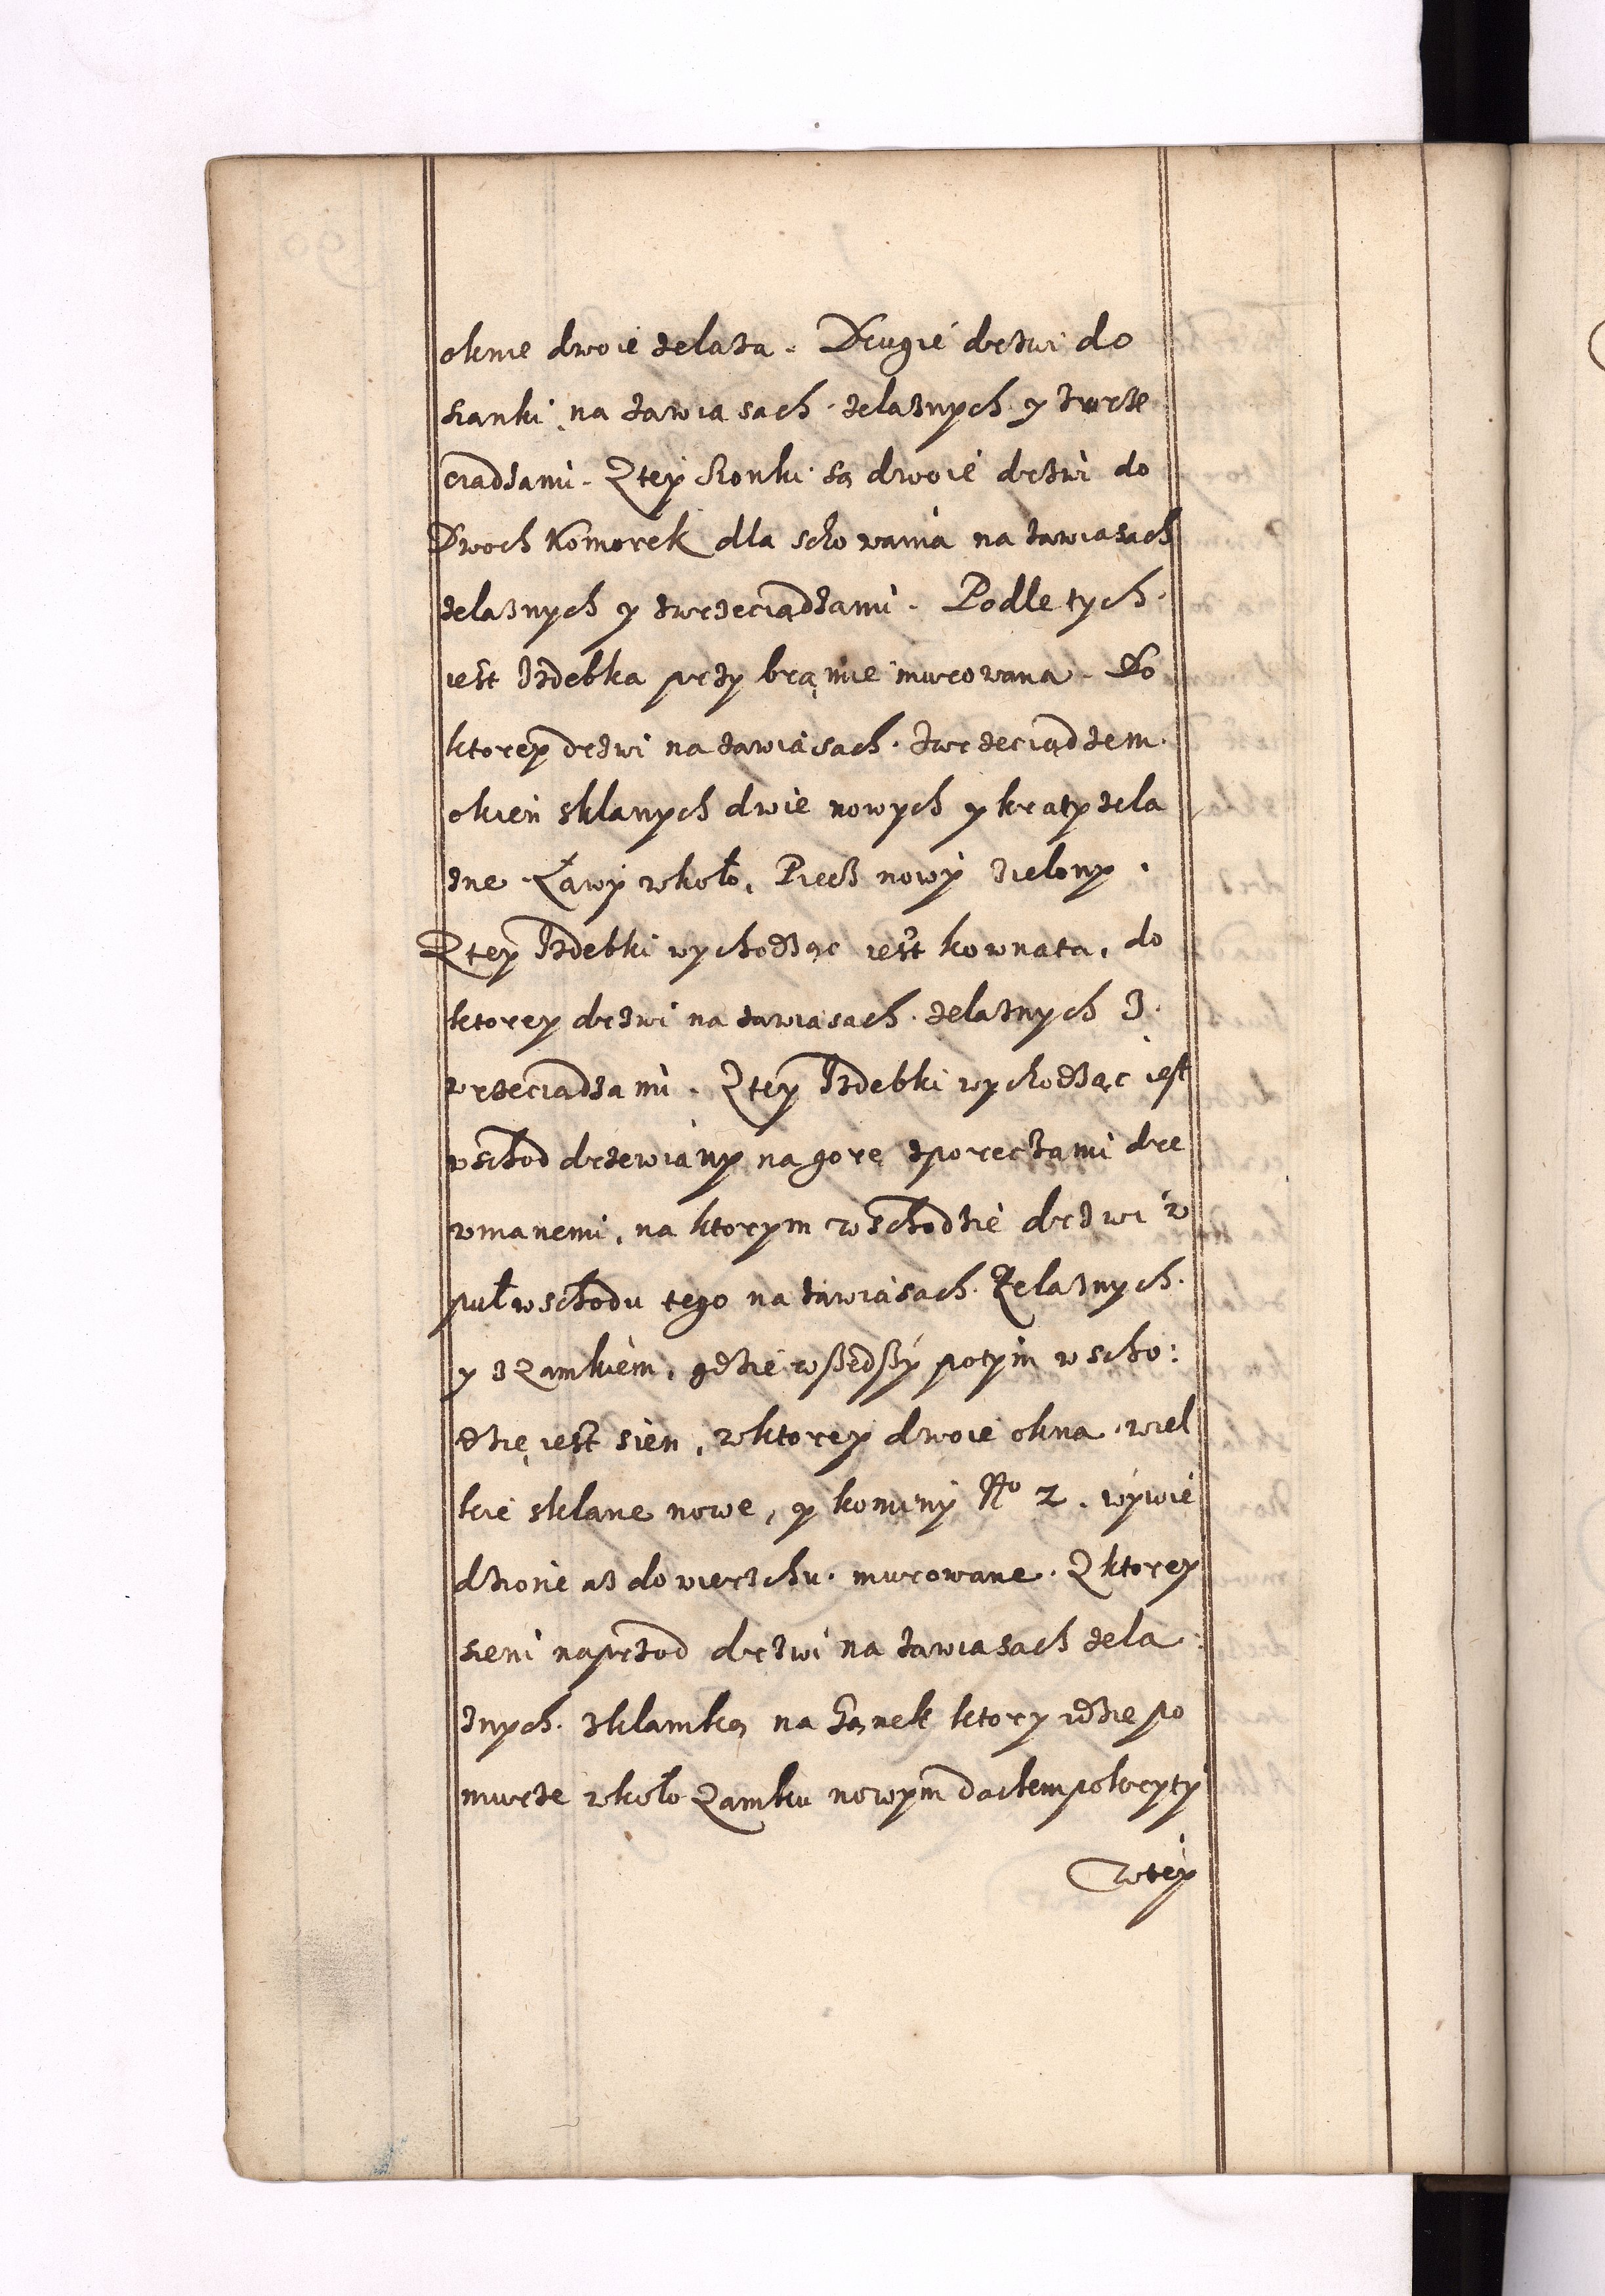 oknie dwoie zelaza. Drugié drzwi do
sianki na zawiasach zelaznych y zwrze
ciadzami. Ztey sionki są dwoie drzwi do
Dwoch Komorek dla schowania na zawiasach
zelaznych y zwrzeciądzami. Podle tych
iest Izdebka przy brąmie murowana. Do
ktorey drzwi na zawiasach zwrzeciądzem.
okien sklanych dwie nowych y kraty zela
zne. Ławy wkoło, Piecz nowy zielony.
Ztey Izdebki wychodząc iest kownata, do
ktorey drzwi na zawiasach zelaznych z.
wrzeciadzami. Ztey Izdebki wychodząc iest
wschod drzewiany na gorę zporeczami dre
wnianemi, na ktorym wschodzie drzwi w
puł wschodu tego na zawiasach Zelaznych.
y z Zamkiem, gdzie wszedszy potym wscho:
dzie iest sień, wktorey dwoie okna wiel
kie sklane nowe, y kominy No 2. wywie
dzione asz do wierzchu murowane. Zktorey
sieni naprzod drzwi na zawiasach zela:
znych zklamką na Ganek ktory idzie po
murze wkoło Zamku nowym dachem pokryty
Wtey